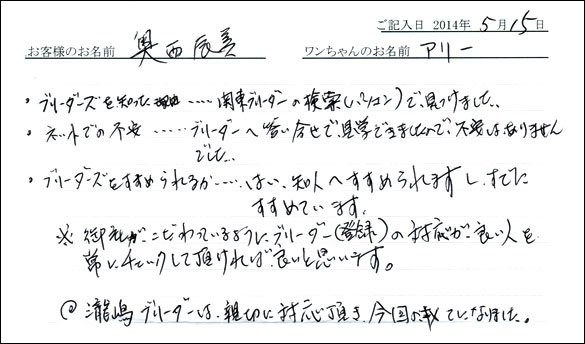 ご記入日 2014年 5月 15日
お客様のお名前 奥西辰美 ワンちゃんのお名前 アリー
・ブリーダーズを知った理由‥‥関東ブリーダーの検索(パソコン)で見つけました。
・ネットでの不安‥‥‥ブリーダーへ問い合せで、見学できましたので、不安はありません
でした。
・ブリーダーズをすすめられるか‥‥はい、知人へすすめられますし、すでに
すすめています。
※御社がこだわっているようにブリーダー(登録)の対応が良い人を
常にチェックして頂ければ良いと思います。
@瀧嶋ブリーダーは、親切に対応頂き、今回の